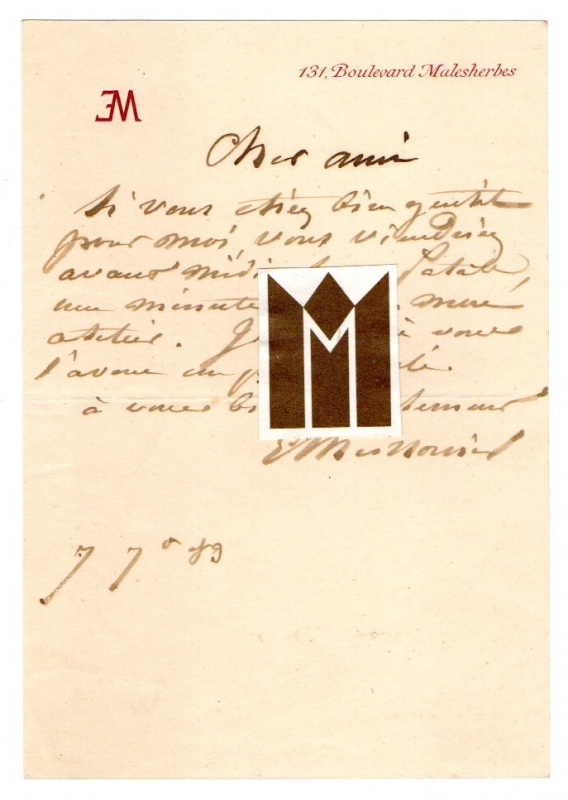 131, Boulevard Malesherbes
EM
Cher ami
Si vous étiez bien gentil
pour moi, vous viendriez
avant midi
une minute mon
atelier. à vous
l'avoue un
à vous
EMeissonier
7 7º 89